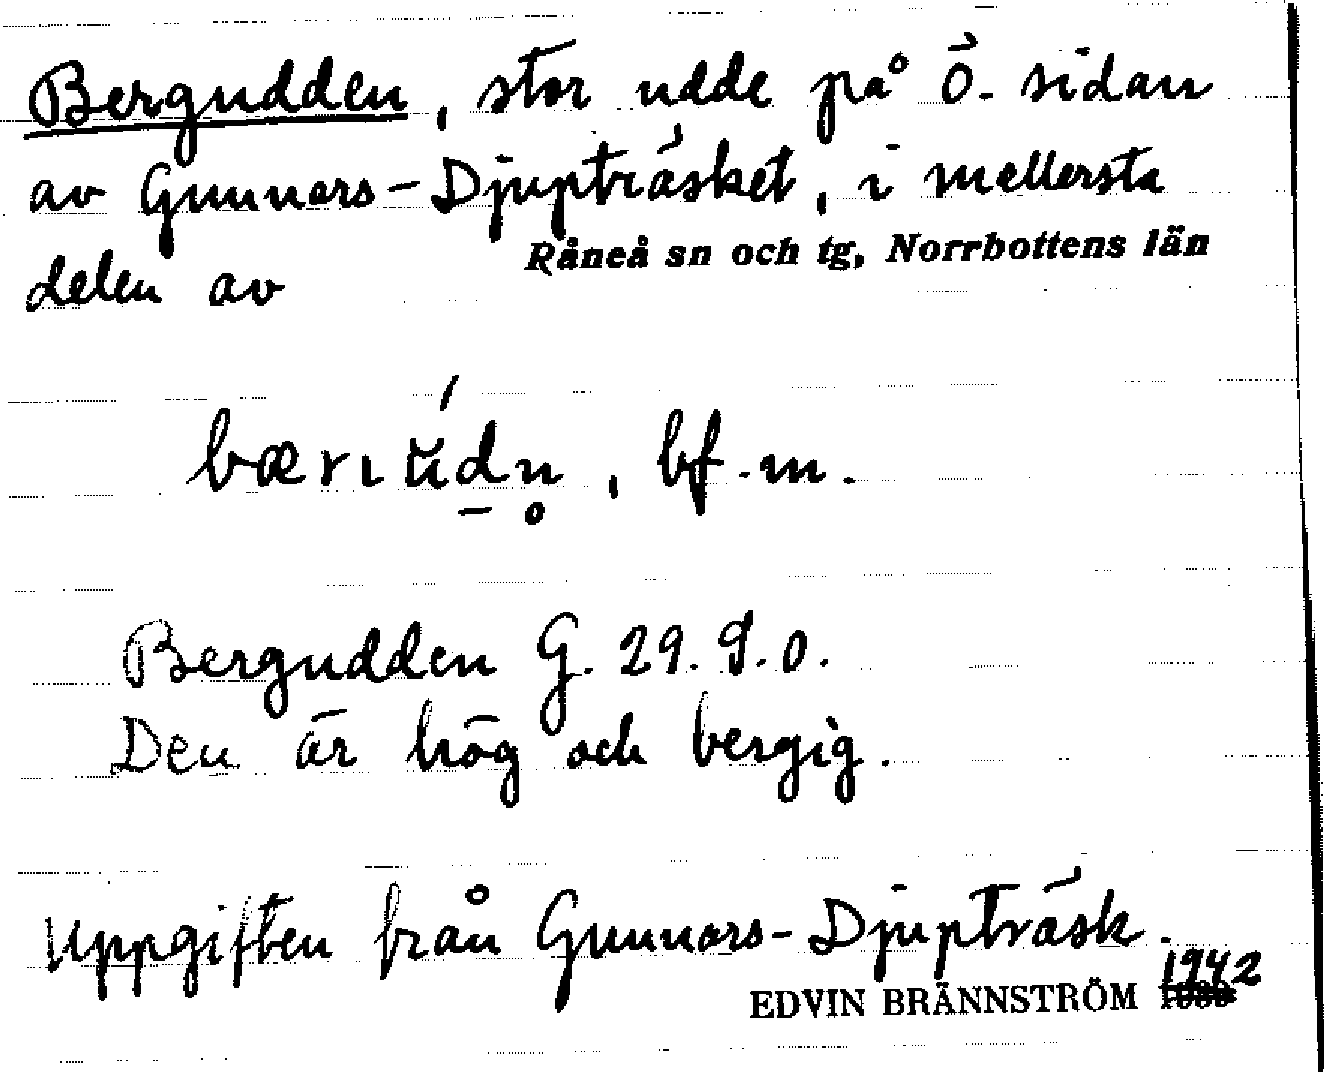 Bergudden, stor udde på ö. sidan
av Gunnars-Djupträsket, i mellersta
Råneå sn och tg, Norrbottens län
delen av
bf. m.
Bergudden G. 29. 9. 0.
Den är hög och bergig.
Uppgiften från Gunnars-Djupträsk.
EDVIN BRÄNNSTRÖM 1942